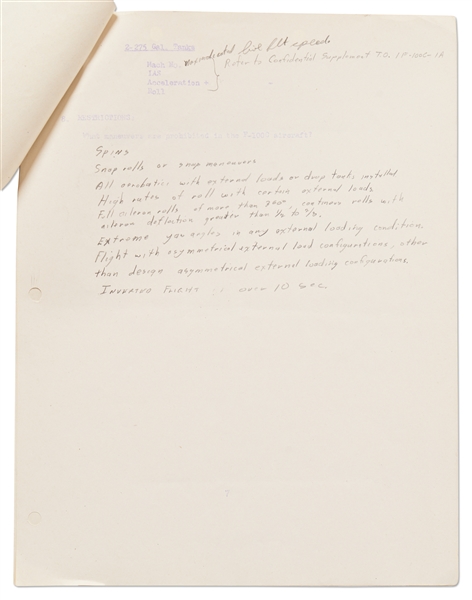 recommended first flt speeds
Refer to Confidential Supplement T.O. 1F-100C-1A
Mach
IAS
Acceleration +
Roll
MANEUVERS
maneuvers are prohibited in the aircraft?
Spins
Snap rolls or snap maneuvers
All acrobatics with external loads or drop tanks installed
High rates of roll with certain external loads
Full aileron rolls of more than 360°, continous rolls with
aileron deflection greater than
Extreme yaw angles in any external loading condition.
Flight with asymmetrical external load configurations, other
than design asymmetrical external loading configurations.
INVERTED FLIGHT over 10 sec.